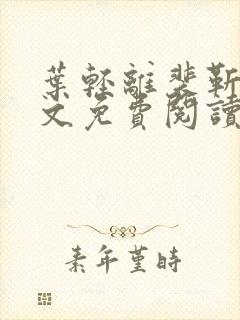 葉輕離裴靳
文免費閱讀
素年堇時